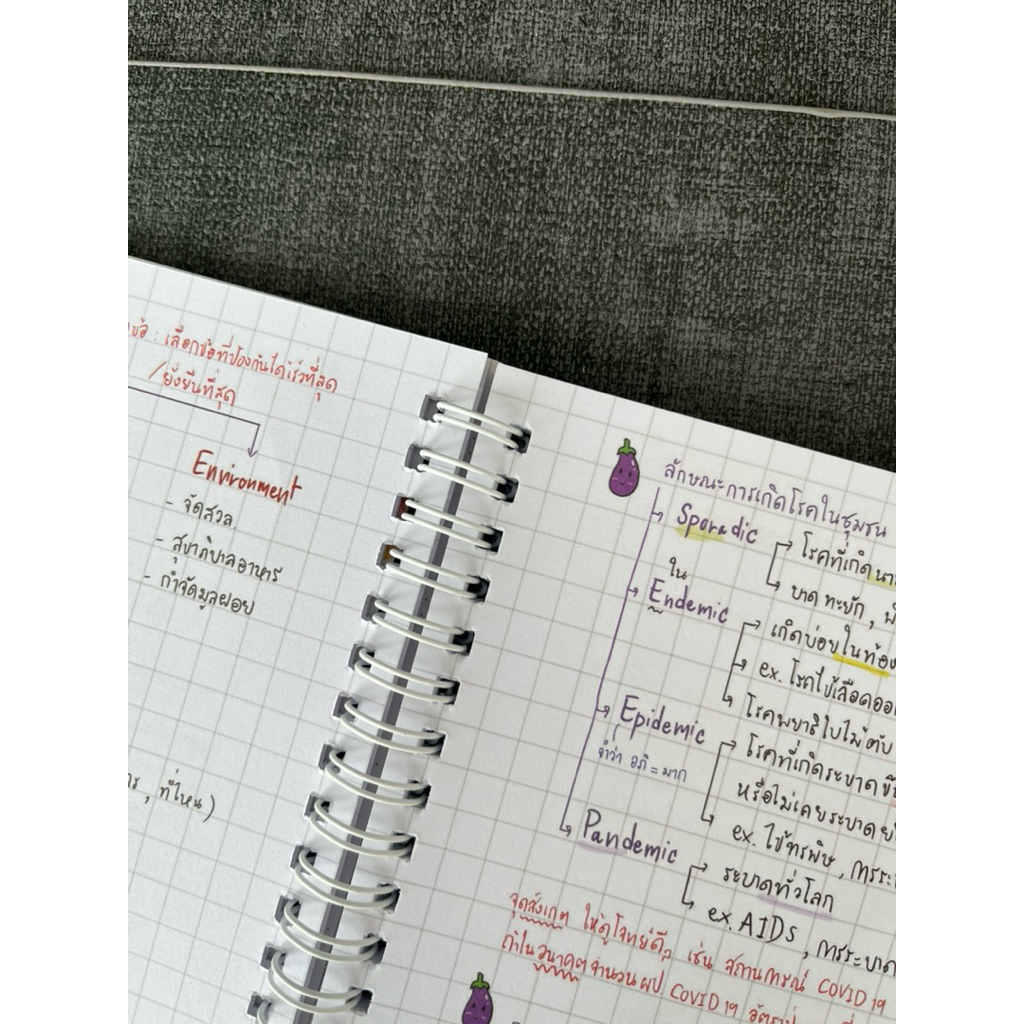 เลือกข้อที่ป้องกันได้เร็วที่สุด
/ยั่งยืนที่สุด
Environment
- จัดสวล
- สุขาภิบาลอาหาร
- กำจัดมูลฝอย
, ที่ไหน)
ลักษณะการเกิดโรคในชุมชน
Sporadic
โรคที่เกิด
บาดทะยัก,
ใน
Endemic
เกิดบ่อยในท้อง
ex. โรคไข้เลือดออ
โรคพยาธิใบไม้ตับ
Epidemic
จำว่า อภิ = มาก
โรคที่เกิดระบาด
หรือไม่เคยระบาด
ex. ไข้ทรพิษ,
Pandemic
ระบาดทั่วโลก
ex. AIDs, การระบาด
จุดสังเกต ให้ดูโจทย์ดีๆ เช่น สถานการณ์ COVID 19
ถ้าในอนาคตจำนวนผป. COVID 19